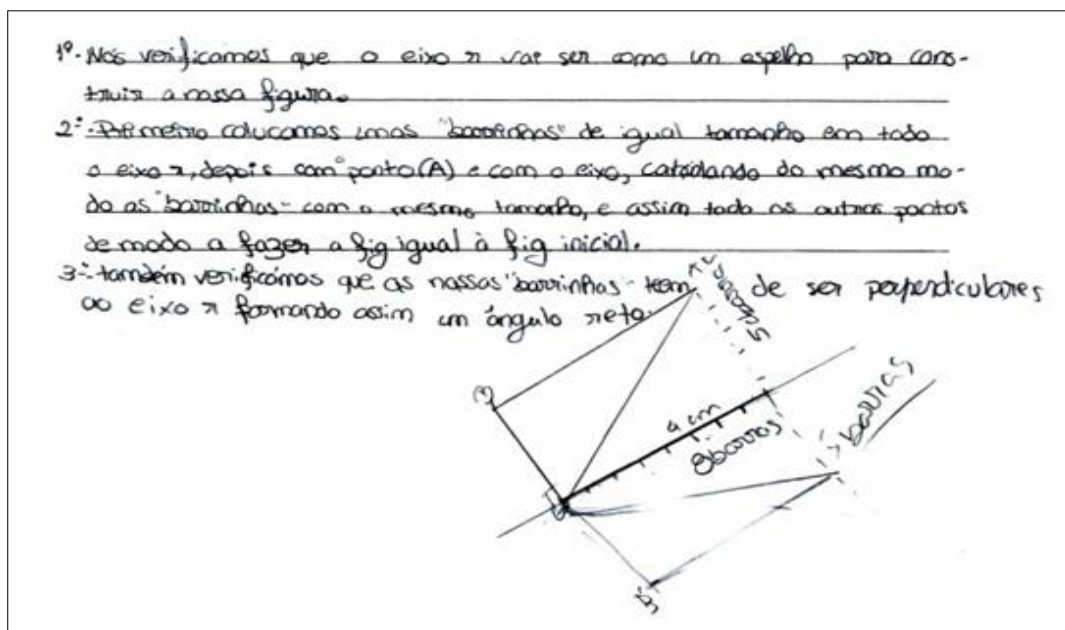 1º-Nós verificamos que o eixo r vai ser como um espelho para cons-
truir a nossa figura.
2º-Primeiro colucamos umas "barrinhas" de igual tamanho em todo
o eixo r, depois com o ponto (A) e com o eixo, do mesmo mo-
do as "barrinhas" com o mesmo tamanho, e assim todo os outros pontos
de modo a fazer a fig igual à fig inicial.
3º-também verificámos que as nossas "barrinhas" tem de ser perpendiculares
ao eixo r formando assim um ângulo reto.
5 barras
4 cm
8 barras
5 barras